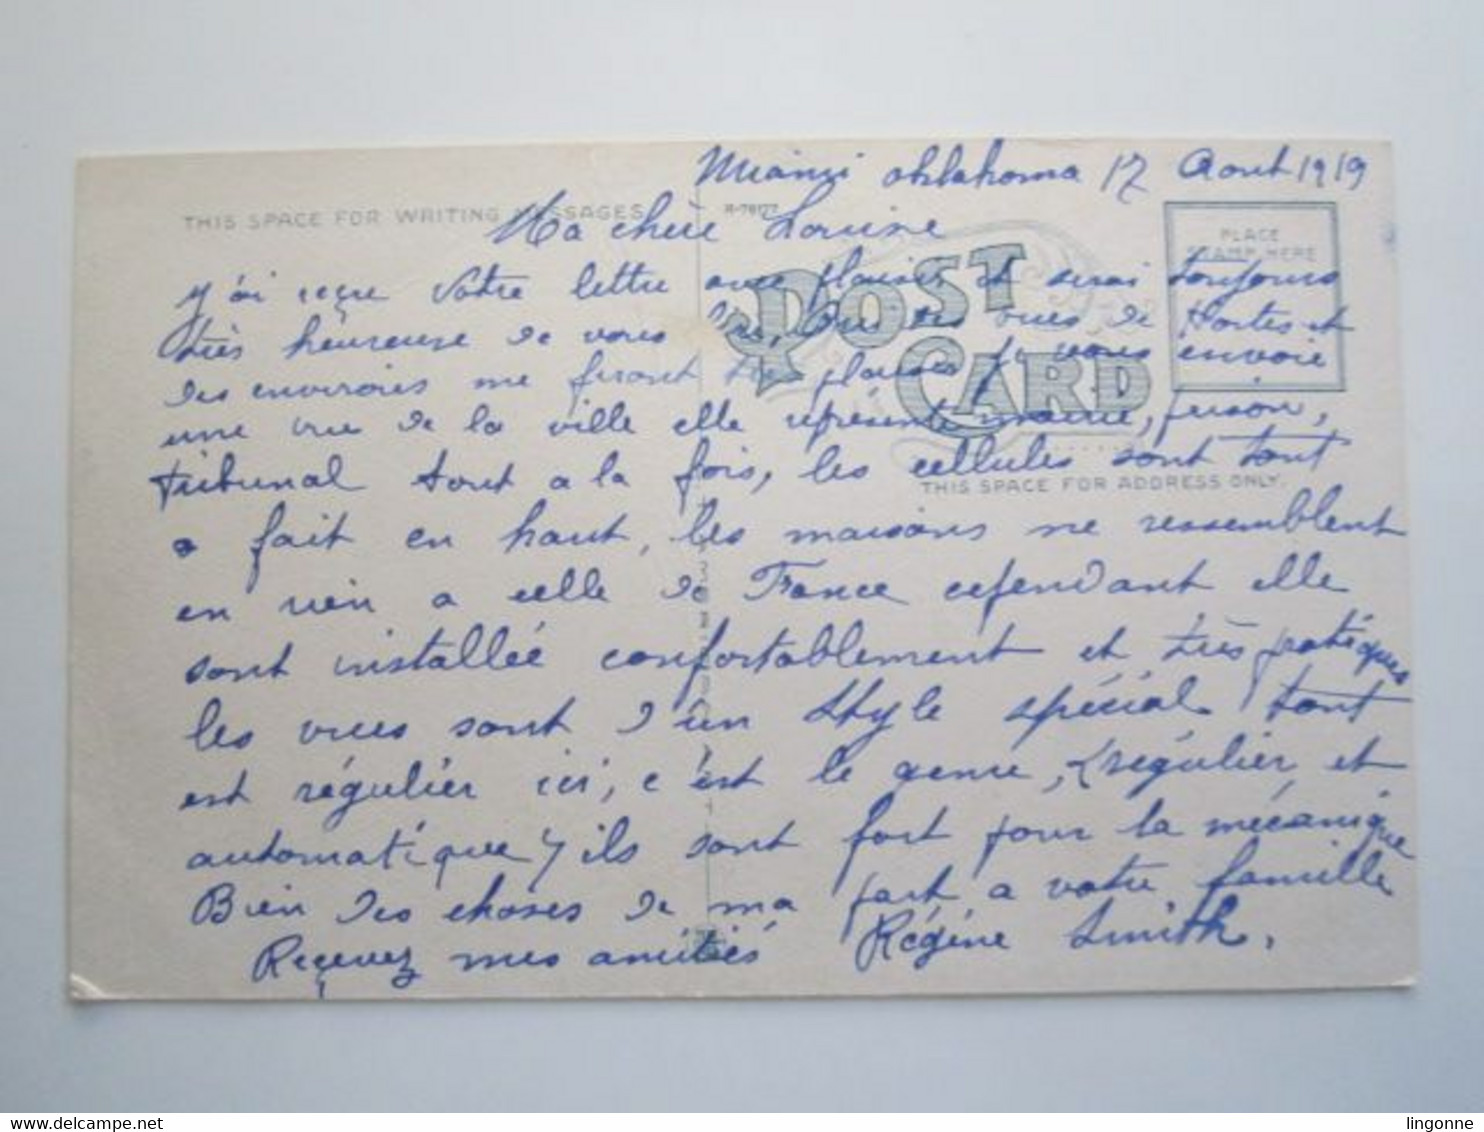 Miami Oklahoma 17 Aout 1919
THIS SPACE FOR WRITING MESSAGES
Ma chère Louise
PLACE
STAMP HERE
POST
CARD
THIS SPACE FOR ADDRESS ONLY.
J'ai reçue votre lettre avec plaisir et serai toujours
très heureuse de vous lire, des vues de et
des environs me feront plaisir je vous envoie
une vue de la ville elle représente mairie, prison,
tribunal tout a la fois, les cellules sont tout
a fait en haut, les maisons ne ressemblent
en rien a celle de France cependant elle
sont installée confortablement et très pratiques
les vues sont d'un style spécial tout
est régulier ici, c'est le genre, régulier et
automatique, ils sont fort pour la mécanique
Bien des choses de ma part a votre famille
Reçevez mes amitiés Régine Smith.
delcampe.net
lingonne